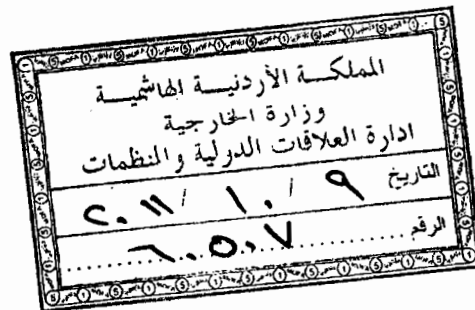 المملكة الأردنية الهاشمية
وزارة الخارجية
ادارة العلاقات الدولية والمنظمات
التاريخ ٩ / ١٠ / ٢٠١١
الرقم ٦٠٥٠٧